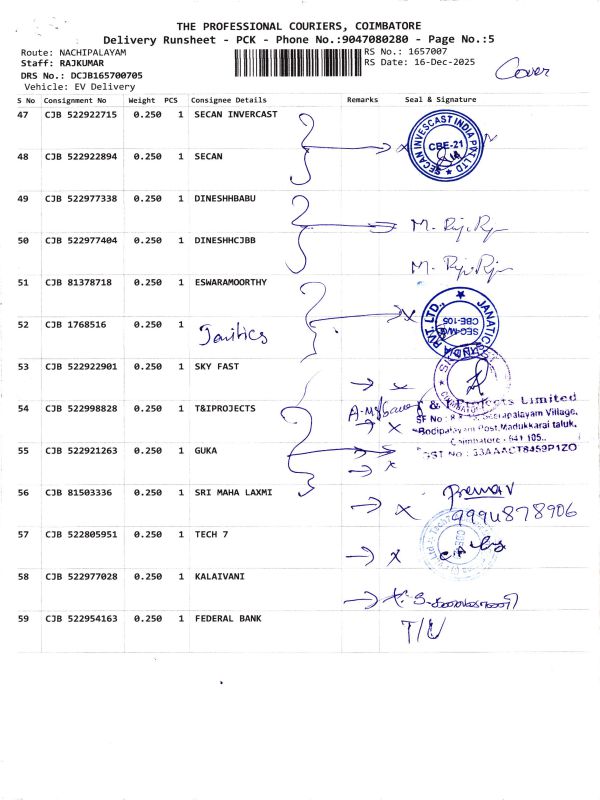 THE PROFESSIONAL COURIERS, COIMBATORE
Delivery Runsheet - PCK - Phone No.:9047080280 - Page No.:5
Route: NACHIPALAYAM RS No.: 1657007
Staff: RAJKUMAR RS Date: 16-Dec-2025
Cover
DRS No.: DCJB165700705
Vehicle: EV Delivery
S No Consignment No Weight PCS Consignee Details Remarks Seal & Signature
47 CJB 522922715 0.250 1 SECAN INVERCAST
SECAN INVESCAST INDIA PVT LTD
CBE-21
48 CJB 522922894 0.250 1 SECAN
49 CJB 522977338 0.250 1 DINESHHBABU
50 CJB 522977404 0.250 1 DINESHHCJBB
51 CJB 81378718 0.250 1 ESWARAMOORTHY
52 CJB 1768516 0.250 1
CBE-105
53 CJB 522922901 0.250 1 SKY FAST
54 CJB 522998828 0.250 1 T&IPROJECTS
Limited
Village,
Post, Madukkarai taluk,
Coimbatore - 641 105..
GST No : 33AAACT8459P1ZO
55 CJB 522921263 0.250 1 GUKA
56 CJB 81503336 0.250 1 SRI MAHA LAXMI
9994878906
57 CJB 522805951 0.250 1 TECH 7
58 CJB 522977028 0.250 1 KALAIVANI
59 CJB 522954163 0.250 1 FEDERAL BANK